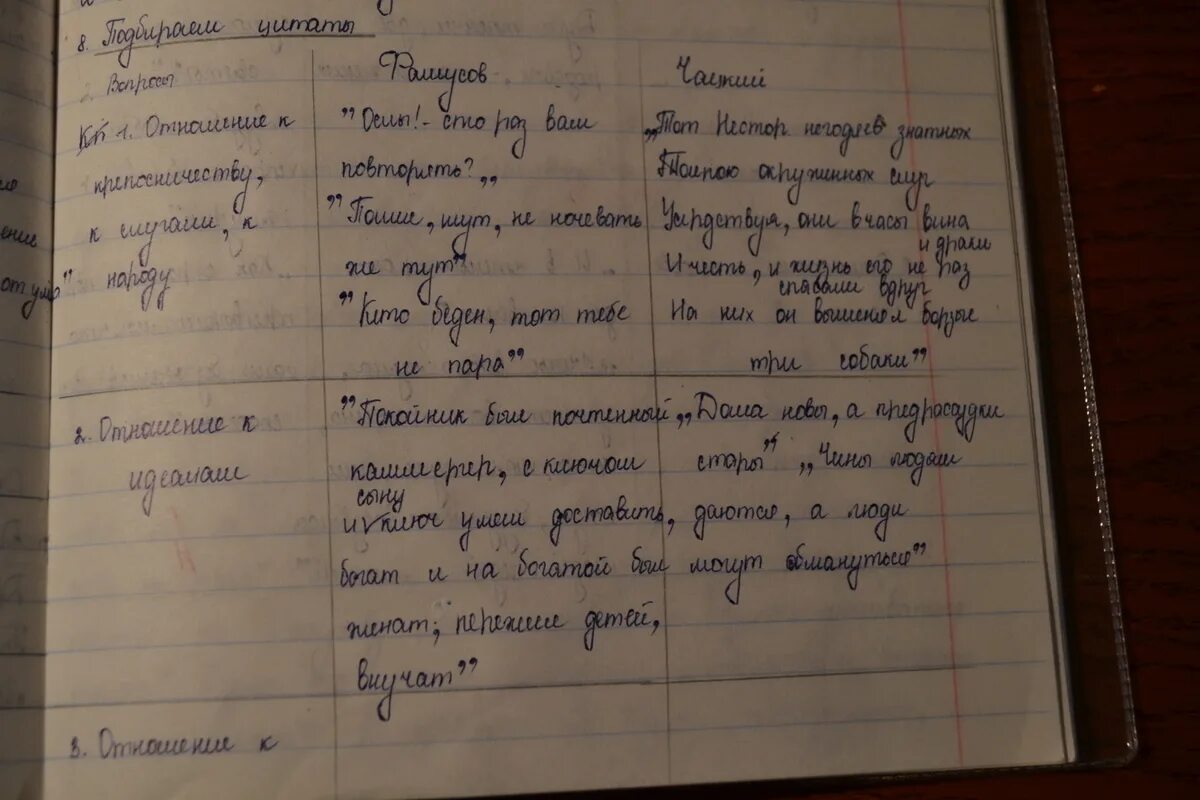 8. Подбираем цитаты
Вопросы
Фамусов
Чацкий
1. Отношение к
крепосничеству,
к слугам, к
народу
"Ослы! - сто раз вам
повторять?"
"Пошло, шут, не ночевать
же тут"
"Кто беден, тот тебе
не пара"
"Тот Нестор негодяев знатных
Толпою окружинных слуг
Усердствуя, они в часы вина
и драки
И честь, и жизнь его не раз
спасали вдруг
На них он выменял борзые
три собаки"
2. Отношение к
идеалам
"Покойник был почтенный
каммергер, с ключом
сыну
и ключ умел доставить,
богат и на богатой был
женат; пережил детей,
внучат"
"Дома новы, а предрассудки
стары" "Чины людьми
даются, а люди
могут обмануться"
3. Отношение к
ение
от ума"